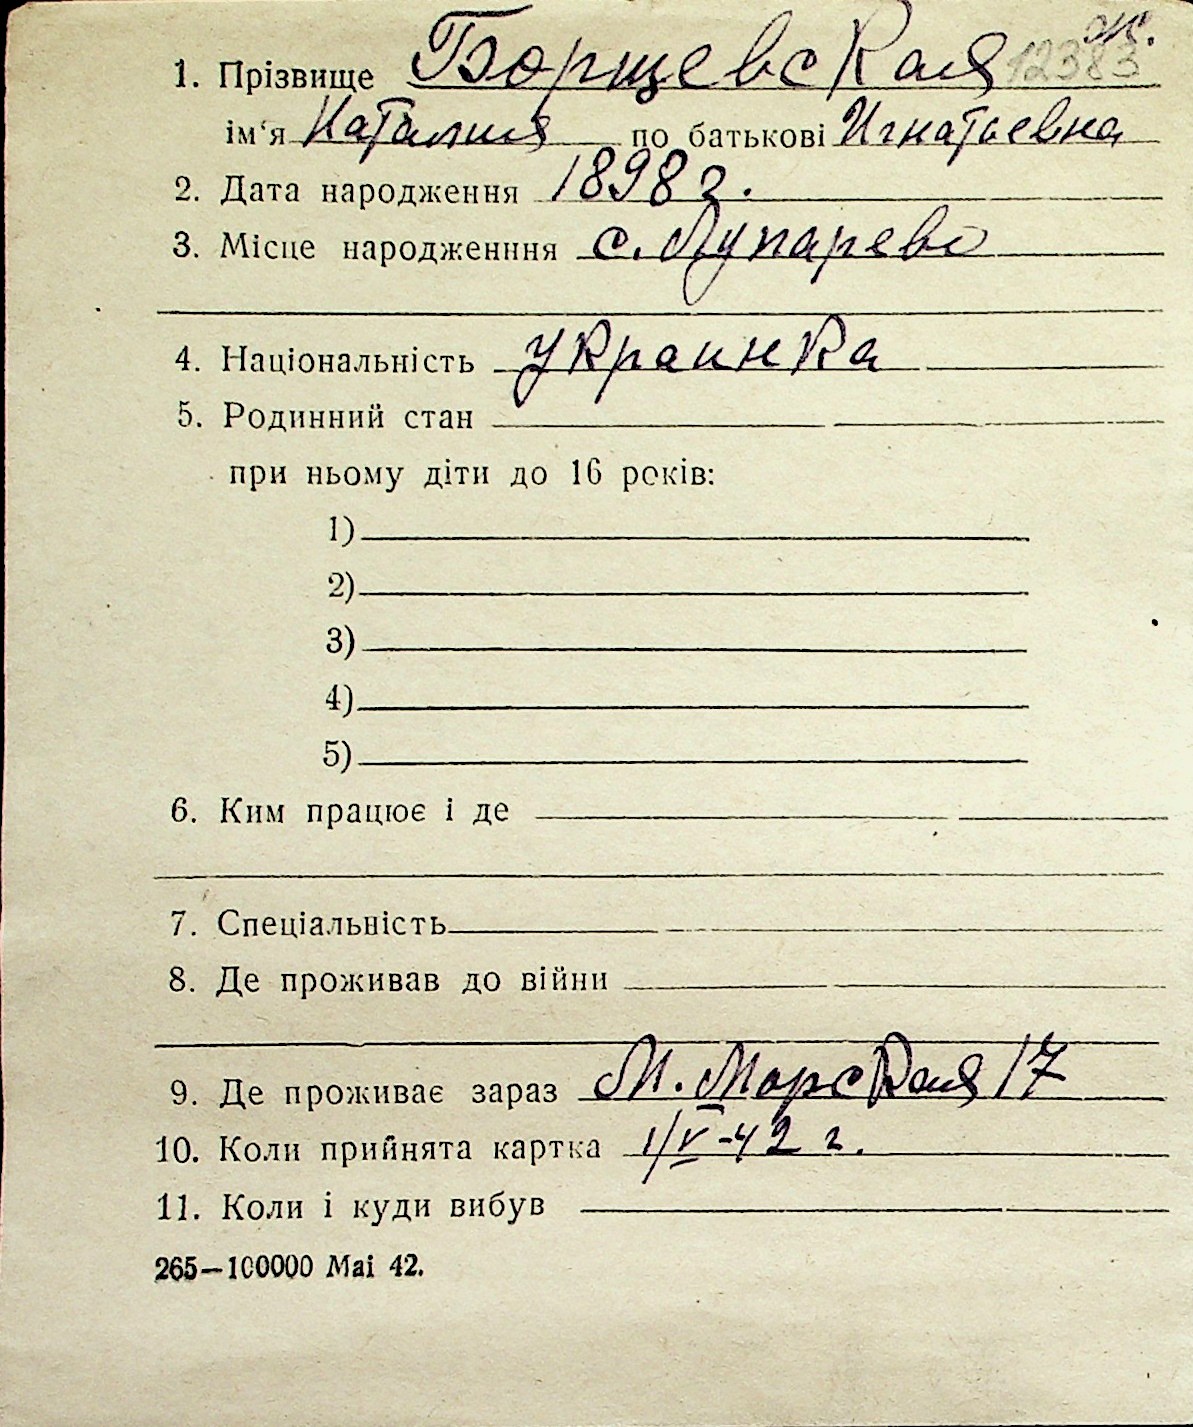 1. Прізвище Борщевская 12383
ім‘я Наталия по батькові Игнатьевна
2. Дата народження 1898 г.
3. Місце народженння с. Лупарево
4. Національність украинка
5. Родинний стан
при ньому діти до 16 років:
1)
2)
3)
4)
5)
6. Ким працює і де
7. Спеціальність
8. Де проживав до війни
9. Де проживає зараз М. Морская 17
10. Коли прийнята картка 1/V-42 г.
11. Коли і куди вибув
265—100000 Mai 42.